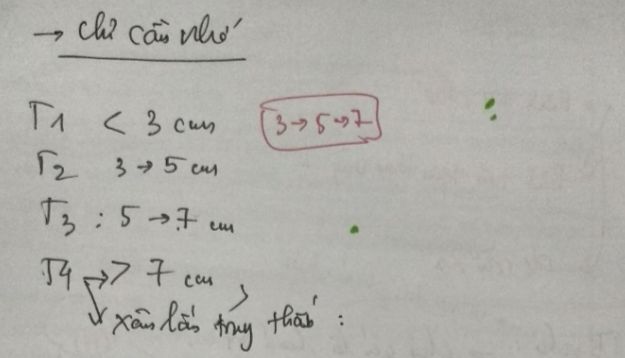 → chỉ cần nhớ
T1 < 3 cm 3→5→7
T2 3→5 cm
T3 : 5→7 cm
T4 → > 7 cm
↳ xâm lấn trực thấ :